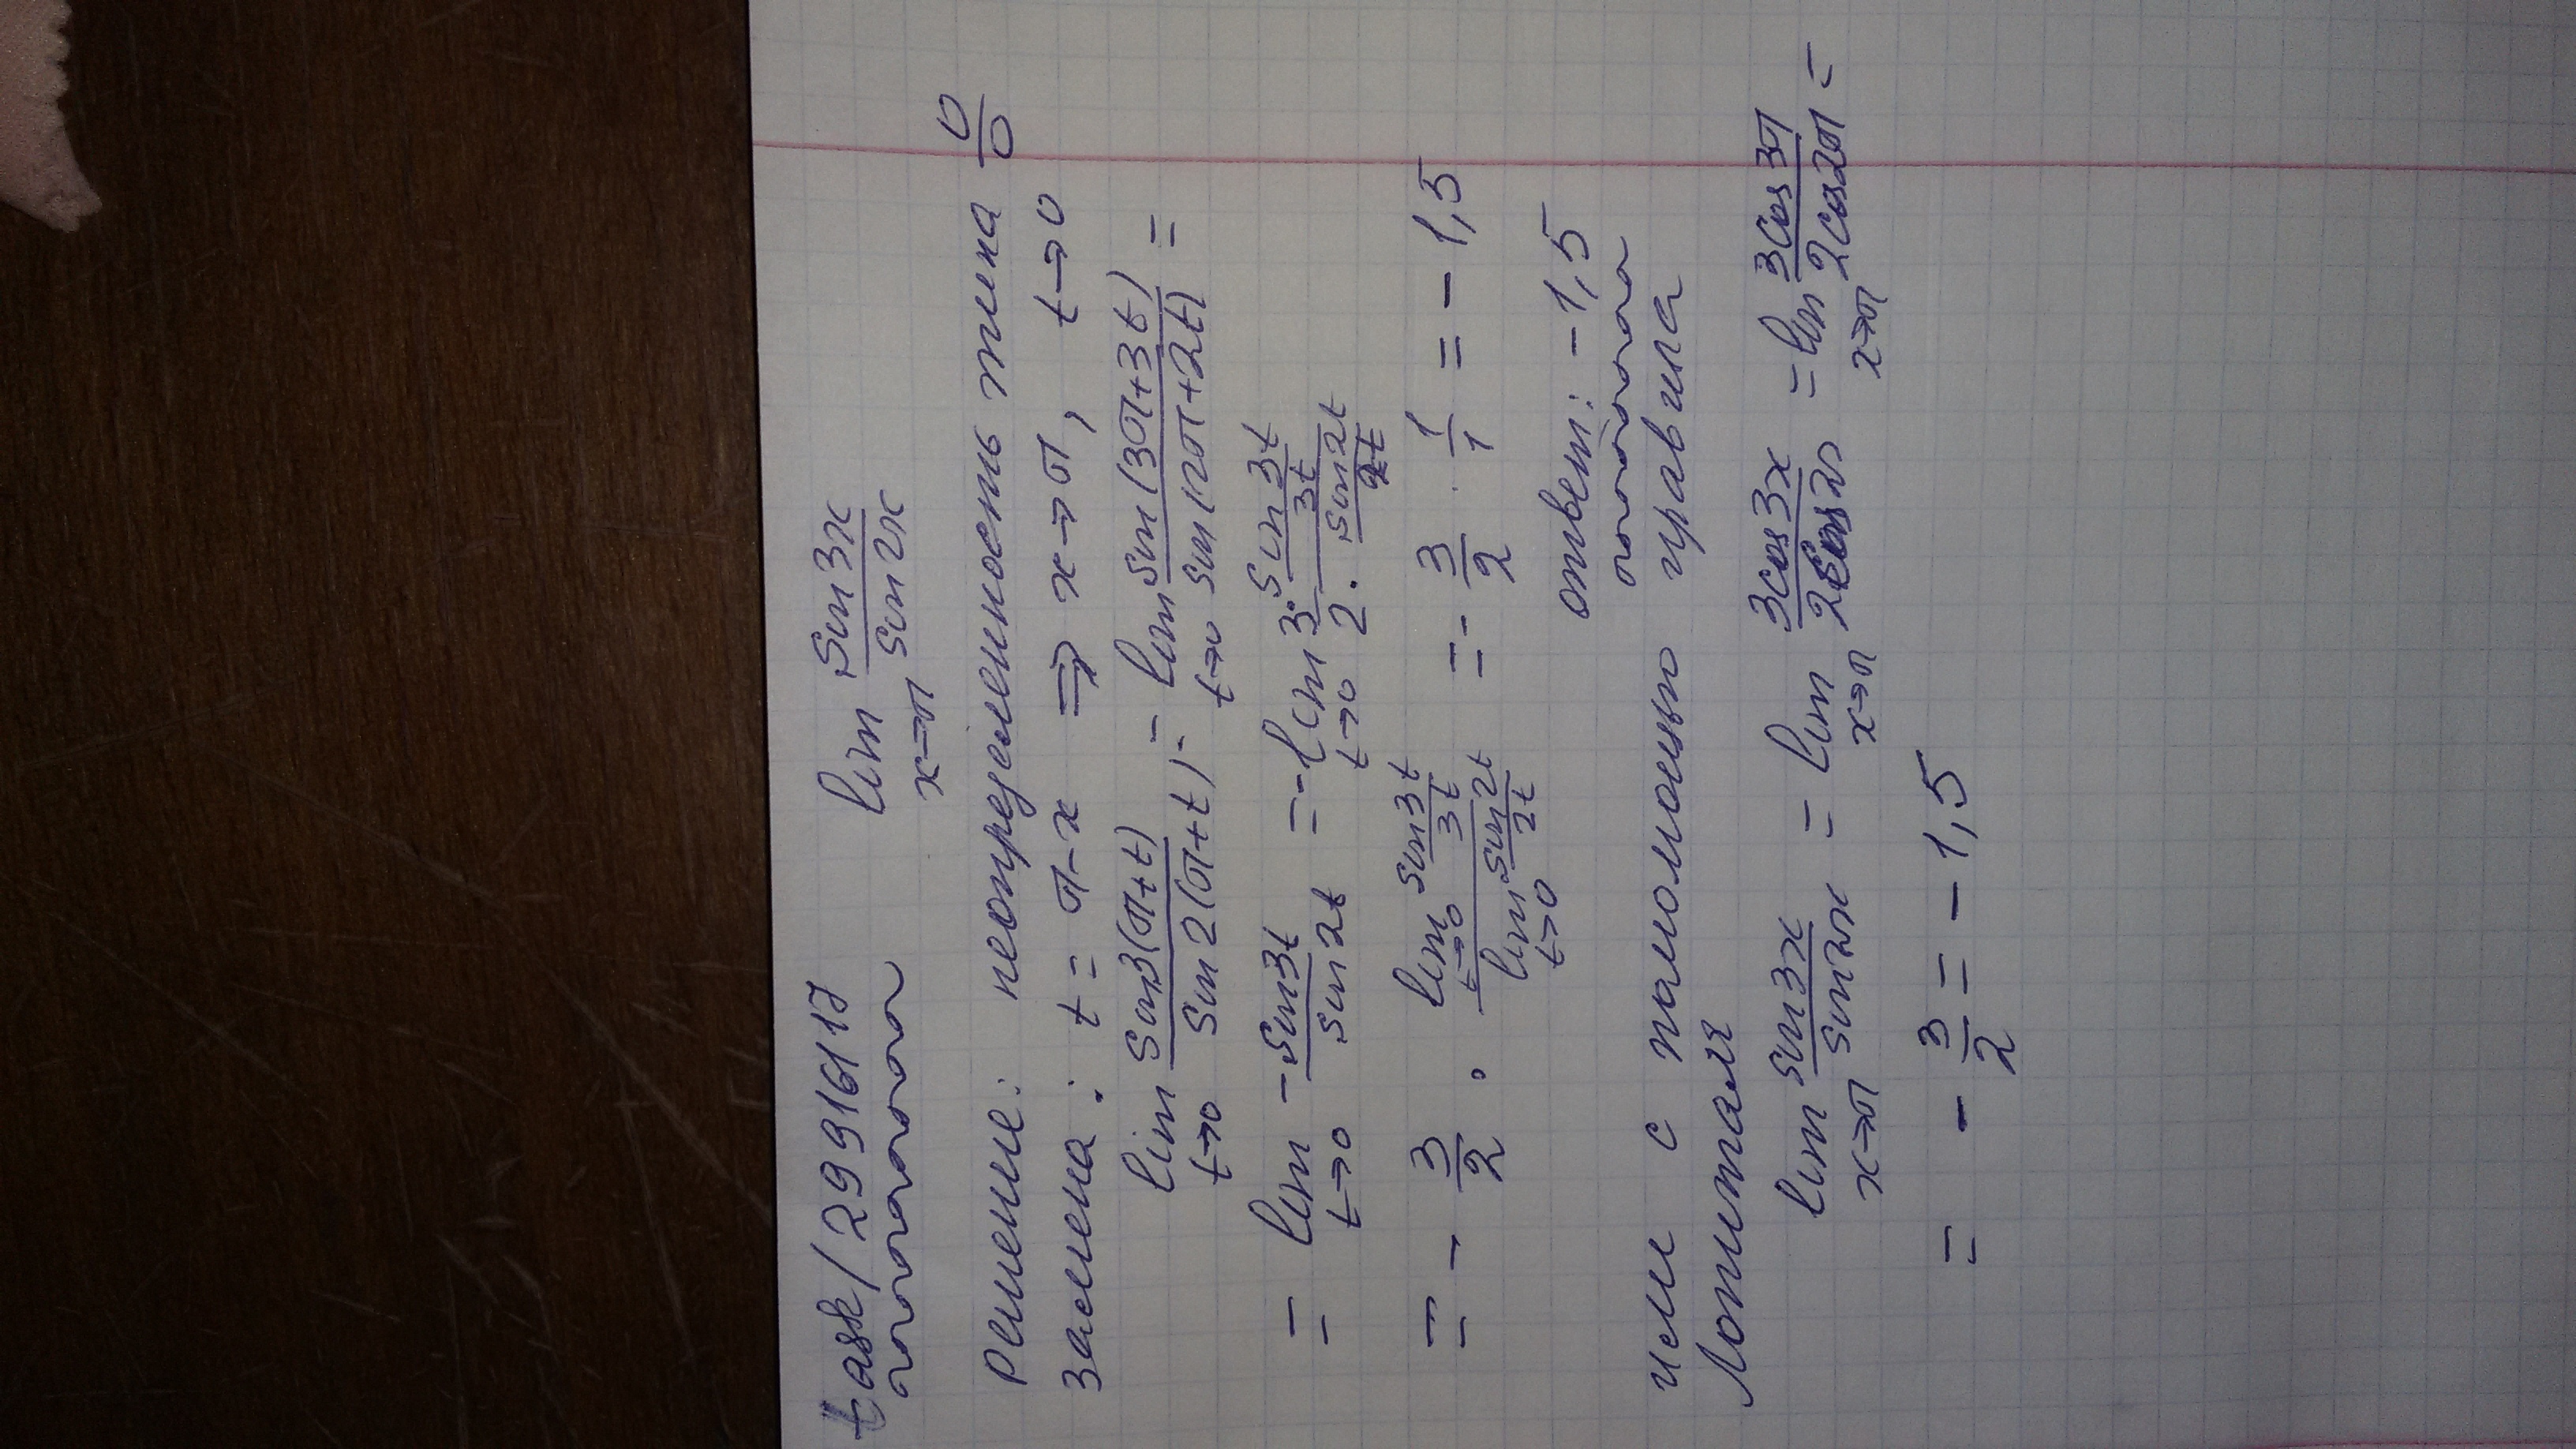 task/29916117 lim x→π sin3x/sin2x
решение: неопределенность типа 0/0
замена: t = π-x ⇒ x→π, t→0
lim t→0 sin3(π+t)/sin2(π+t) = lim t→0 sin(3π+3t)/sin(2π+2t) =
= lim t→0 -sin3t/sin2t = -lim t→0 3·sin3t/3t / 2·sin2t/2t
= - 3/2 · lim t→0 sin3t/3t / lim t→0 sin2t/2t = - 3/2 · 1/1 = -1,5
ответ: -1,5
или с помощью правила
Лопиталя
lim x→π sin3x/sin2x = lim x→π 3cos3x/2cos2x = lim x→π 3cos3π/2cos2π =
= - 3/2 = -1,5